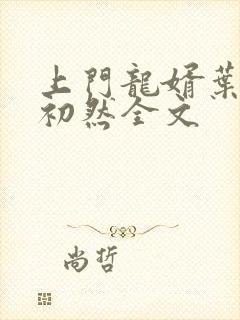 上門龍婿葉
初然全文
尚哲